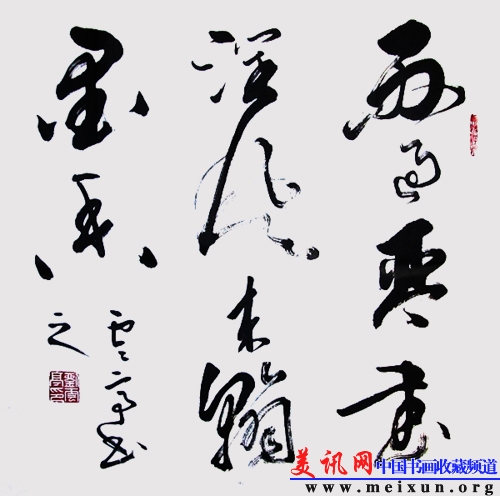 雨過琴書
潤風來翰
墨香
雲亭書
之
美讯网 中国书画收藏频道
www.meixun.org